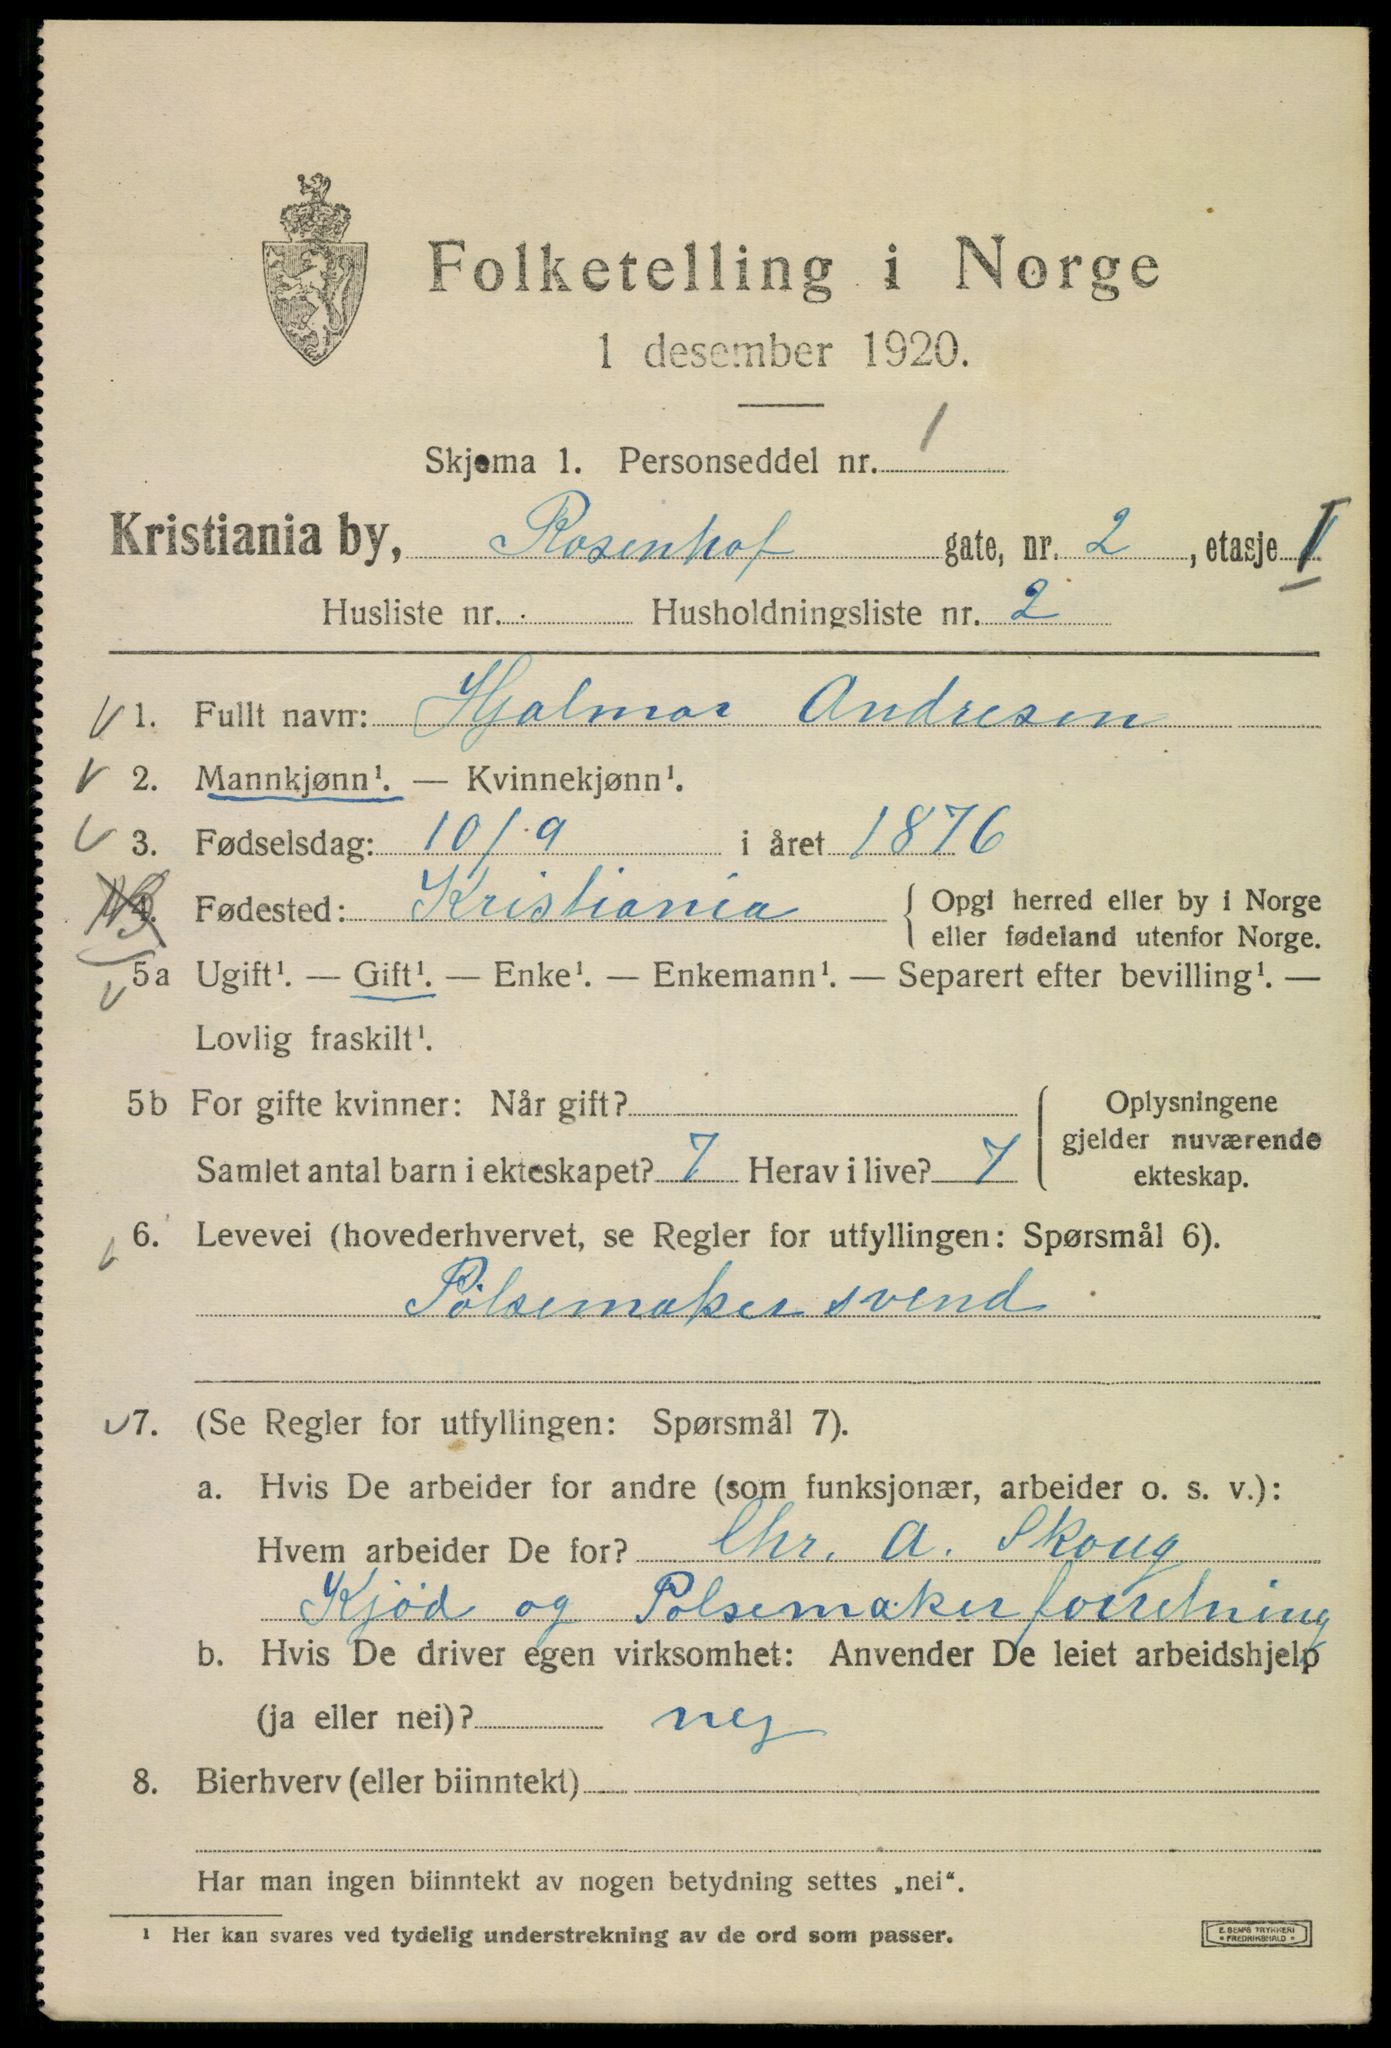 Folketelling i Norge
1 desember 1920.
Skjema 1. Personseddel nr. 1
Kristiania by, Rosenhof gate, nr. 2, etasje I
Husliste nr. Husholdningsliste nr. 2
1. Fullt navn: Hjalmar Andresen
2. Mannkjønn¹. — Kvinnekjønn¹.
3. Fødselsdag: 10/9 i året 1876
4. Fødested: Kristiania { Opgi herred eller by i Norge
eller fødeland utenfor Norge.
5a Ugift¹. — Gift¹. — Enke¹. — Enkemann¹. — Separert efter bevilling¹. —
Lovlig fraskilt¹.
5b For gifte kvinner: Når gift? { Oplysningene
gjelder nuværende
Samlet antal barn i ekteskapet? 7 Herav i live? 7
ekteskap.
6. Levevei (hovederhvervet, se Regler for utfyllingen: Spørsmål 6).
Pølsemaker svend
7. (Se Regler for utfyllingen: Spørsmål 7).
a. Hvis De arbeider for andre (som funksjonær, arbeider o. s. v.):
Hvem arbeider De for? Chr. A. Skoug
Kjød og Pølsemaker forretning
b. Hvis De driver egen virksomhet: Anvender De leiet arbeidshjelp
(ja eller nei)? nej
8. Bierhverv (eller biinntekt)
Har man ingen biinntekt av nogen betydning settes „nei“.
¹ Her kan svares ved tydelig understrekning av de ord som passer.
E. SEM'S TRYKKERI
• FREDRIKSHALD •